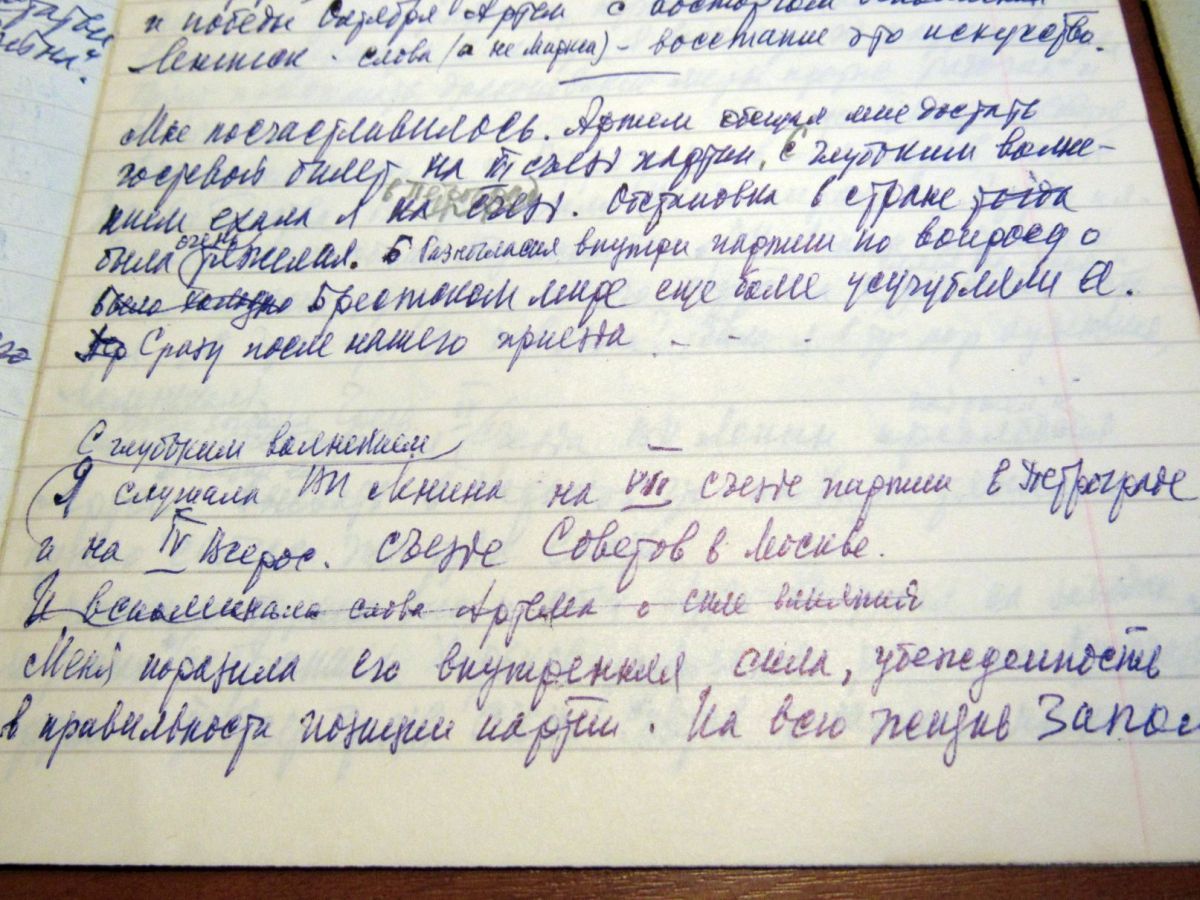 и победы Октября Артем с восторгом
Ленинск. слова (а не Маркса) – восстание это искусство.
Мне посчастливилось. Артем обещал мне достать
гостевой билет на съезд партии. С глубоким волне-
(в Петроград)
нием ехала я на съезд. Обстановка в стране тогда
была очень тяжелая. Разногласия внутри партии по вопросу о
было холодно Брестском мире еще более усугубляли ее.
Сразу после нашего приезда . - - .
С глубоким волнением
Я слушала ВИ Ленина на VII съезде партии в Петрограде
и на IV Всерос. съезде Советов в Москве.
И вспоминала слова Артема о силе влияния
Меня поразила его внутренняя сила, убежденность
в правильности позиции партии. На всю жизнь запом